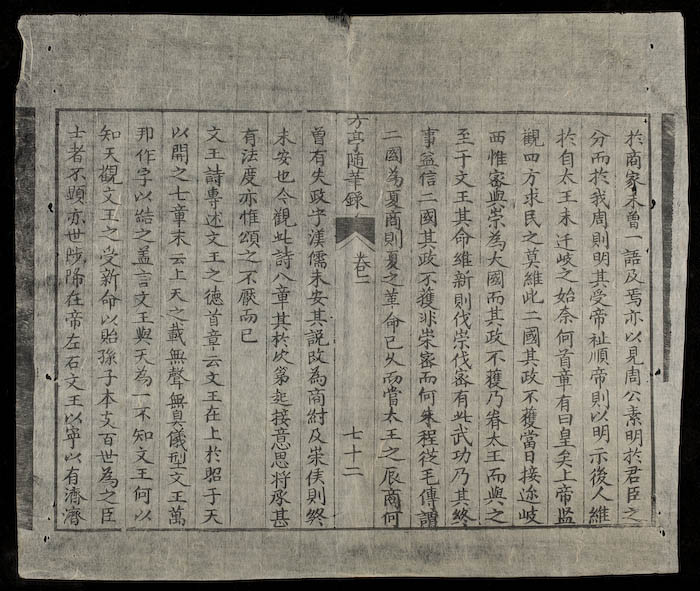 於商家未曾一語及焉亦以見周公素明於君臣之
分而於我周則明其受帝祉順帝則以明示後人維
於自太王未迁岐之始奈何首章有曰皇矣上帝监
觀四方求民之莫維此二國其政不獲當日接迩岐
西惟密與崇為大國而其政不獲乃眷太王而與之
至于文王其命維新則伐崇伐密有此武功乃其終
事益信二國其政不獲非崇密而何朱程從毛傳謂
二國為夏商則夏之革命已久而當太王之辰商何
方亭隨筆錄 卷二 七十二
曾有失政乎漢儒未安其說改為商紂及崇侯則終
未安也今觀此詩八章其於次第起接意思將承甚
有法度亦惟頌之不厭而已
文王詩專述文王之德首章云文王在上於昭于天
以開之七章末云上天之載無聲無臭儀型文王萬
邦作孚以結之盖言文王與天為一不知文王何以
知天觀文王之受新命以貽孫子本支百世為之臣
士者不顯亦世陟降在帝左右文王以寧以有濟濟